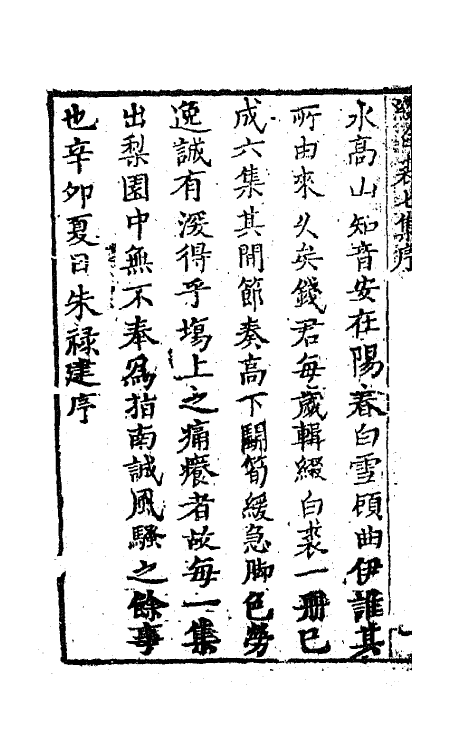 水高山知音安在陽春白雪顧曲伊誰其
所由來久矣錢君每歲輯綴白裘一冊已
成六集其間節奏高下鬬筍緩急脚色勞
逸誠有深得乎塲上之痛癢者故每一集
出梨園中無不奉爲指南誠風騷之餘事
也辛卯夏日朱禄建序